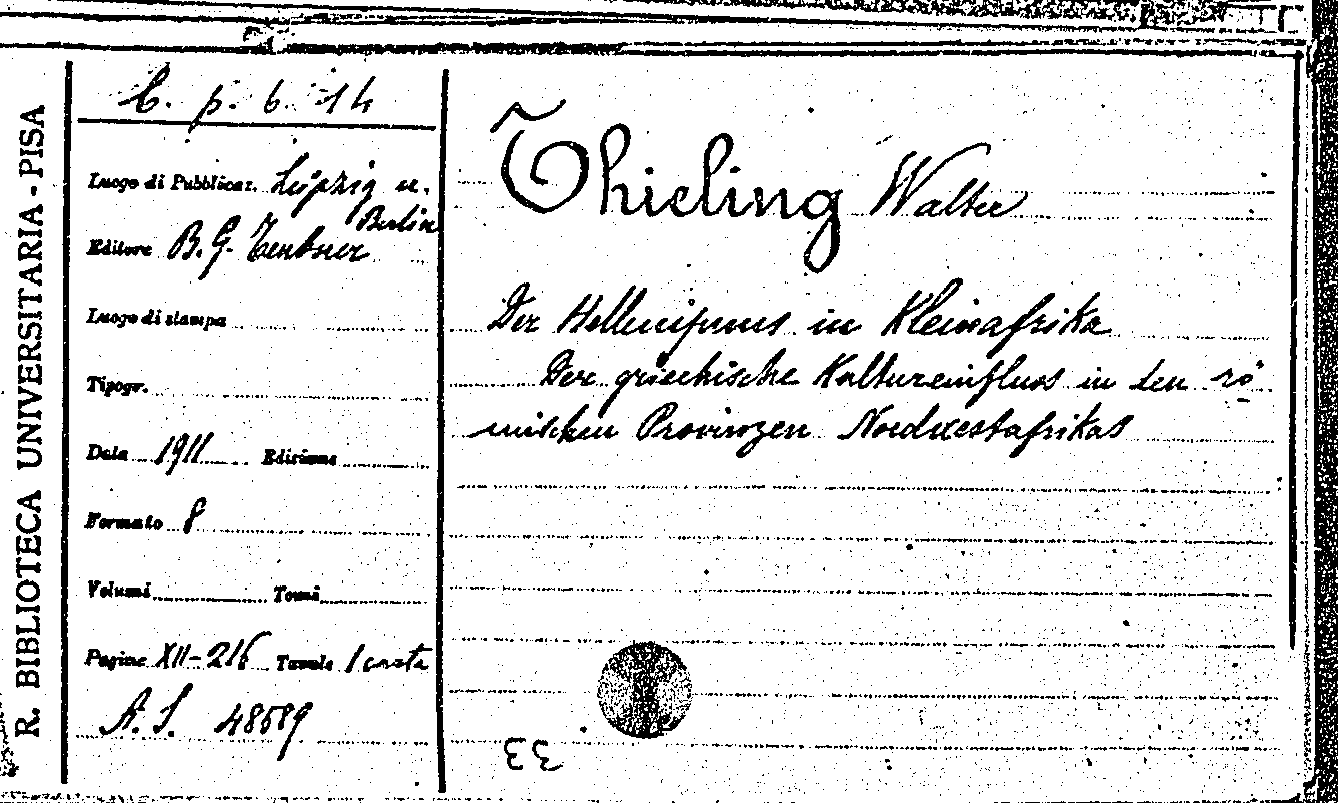 R. BIBLIOTECA UNIVERSITARIA - PISA
C. p. 6. 14
Luogo di Pubblicaz. Leipzig u. Berlin
Editore B. G. Teubner
Luogo di stampa
Tipogr.
Data 1911 Edizione
Formato 8
Volumi Tomi
Pagine XII-216 Tavole 1 carta
A. S. 48589
Thieling Walter
Der Hellenismus in Kleinafrika
Der griechische Kultureinfluss in den rö
mischen Provinzen Nordwestafrikas
33